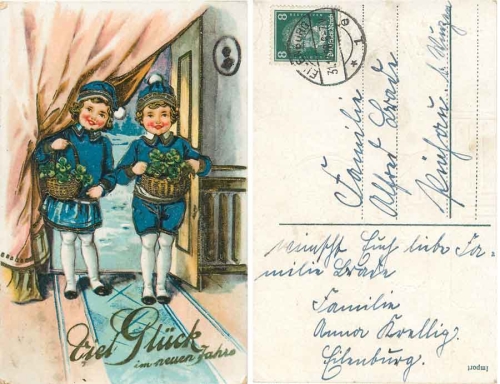 Viel Glück
im neuen Jahre
8 8
Deutsches Reich
Familie
Alfred Brade
b. Wurzen
wünscht Euch liebe Fa-
milie Brade
Familie
Anna Krellig.
Eilenburg.
Import